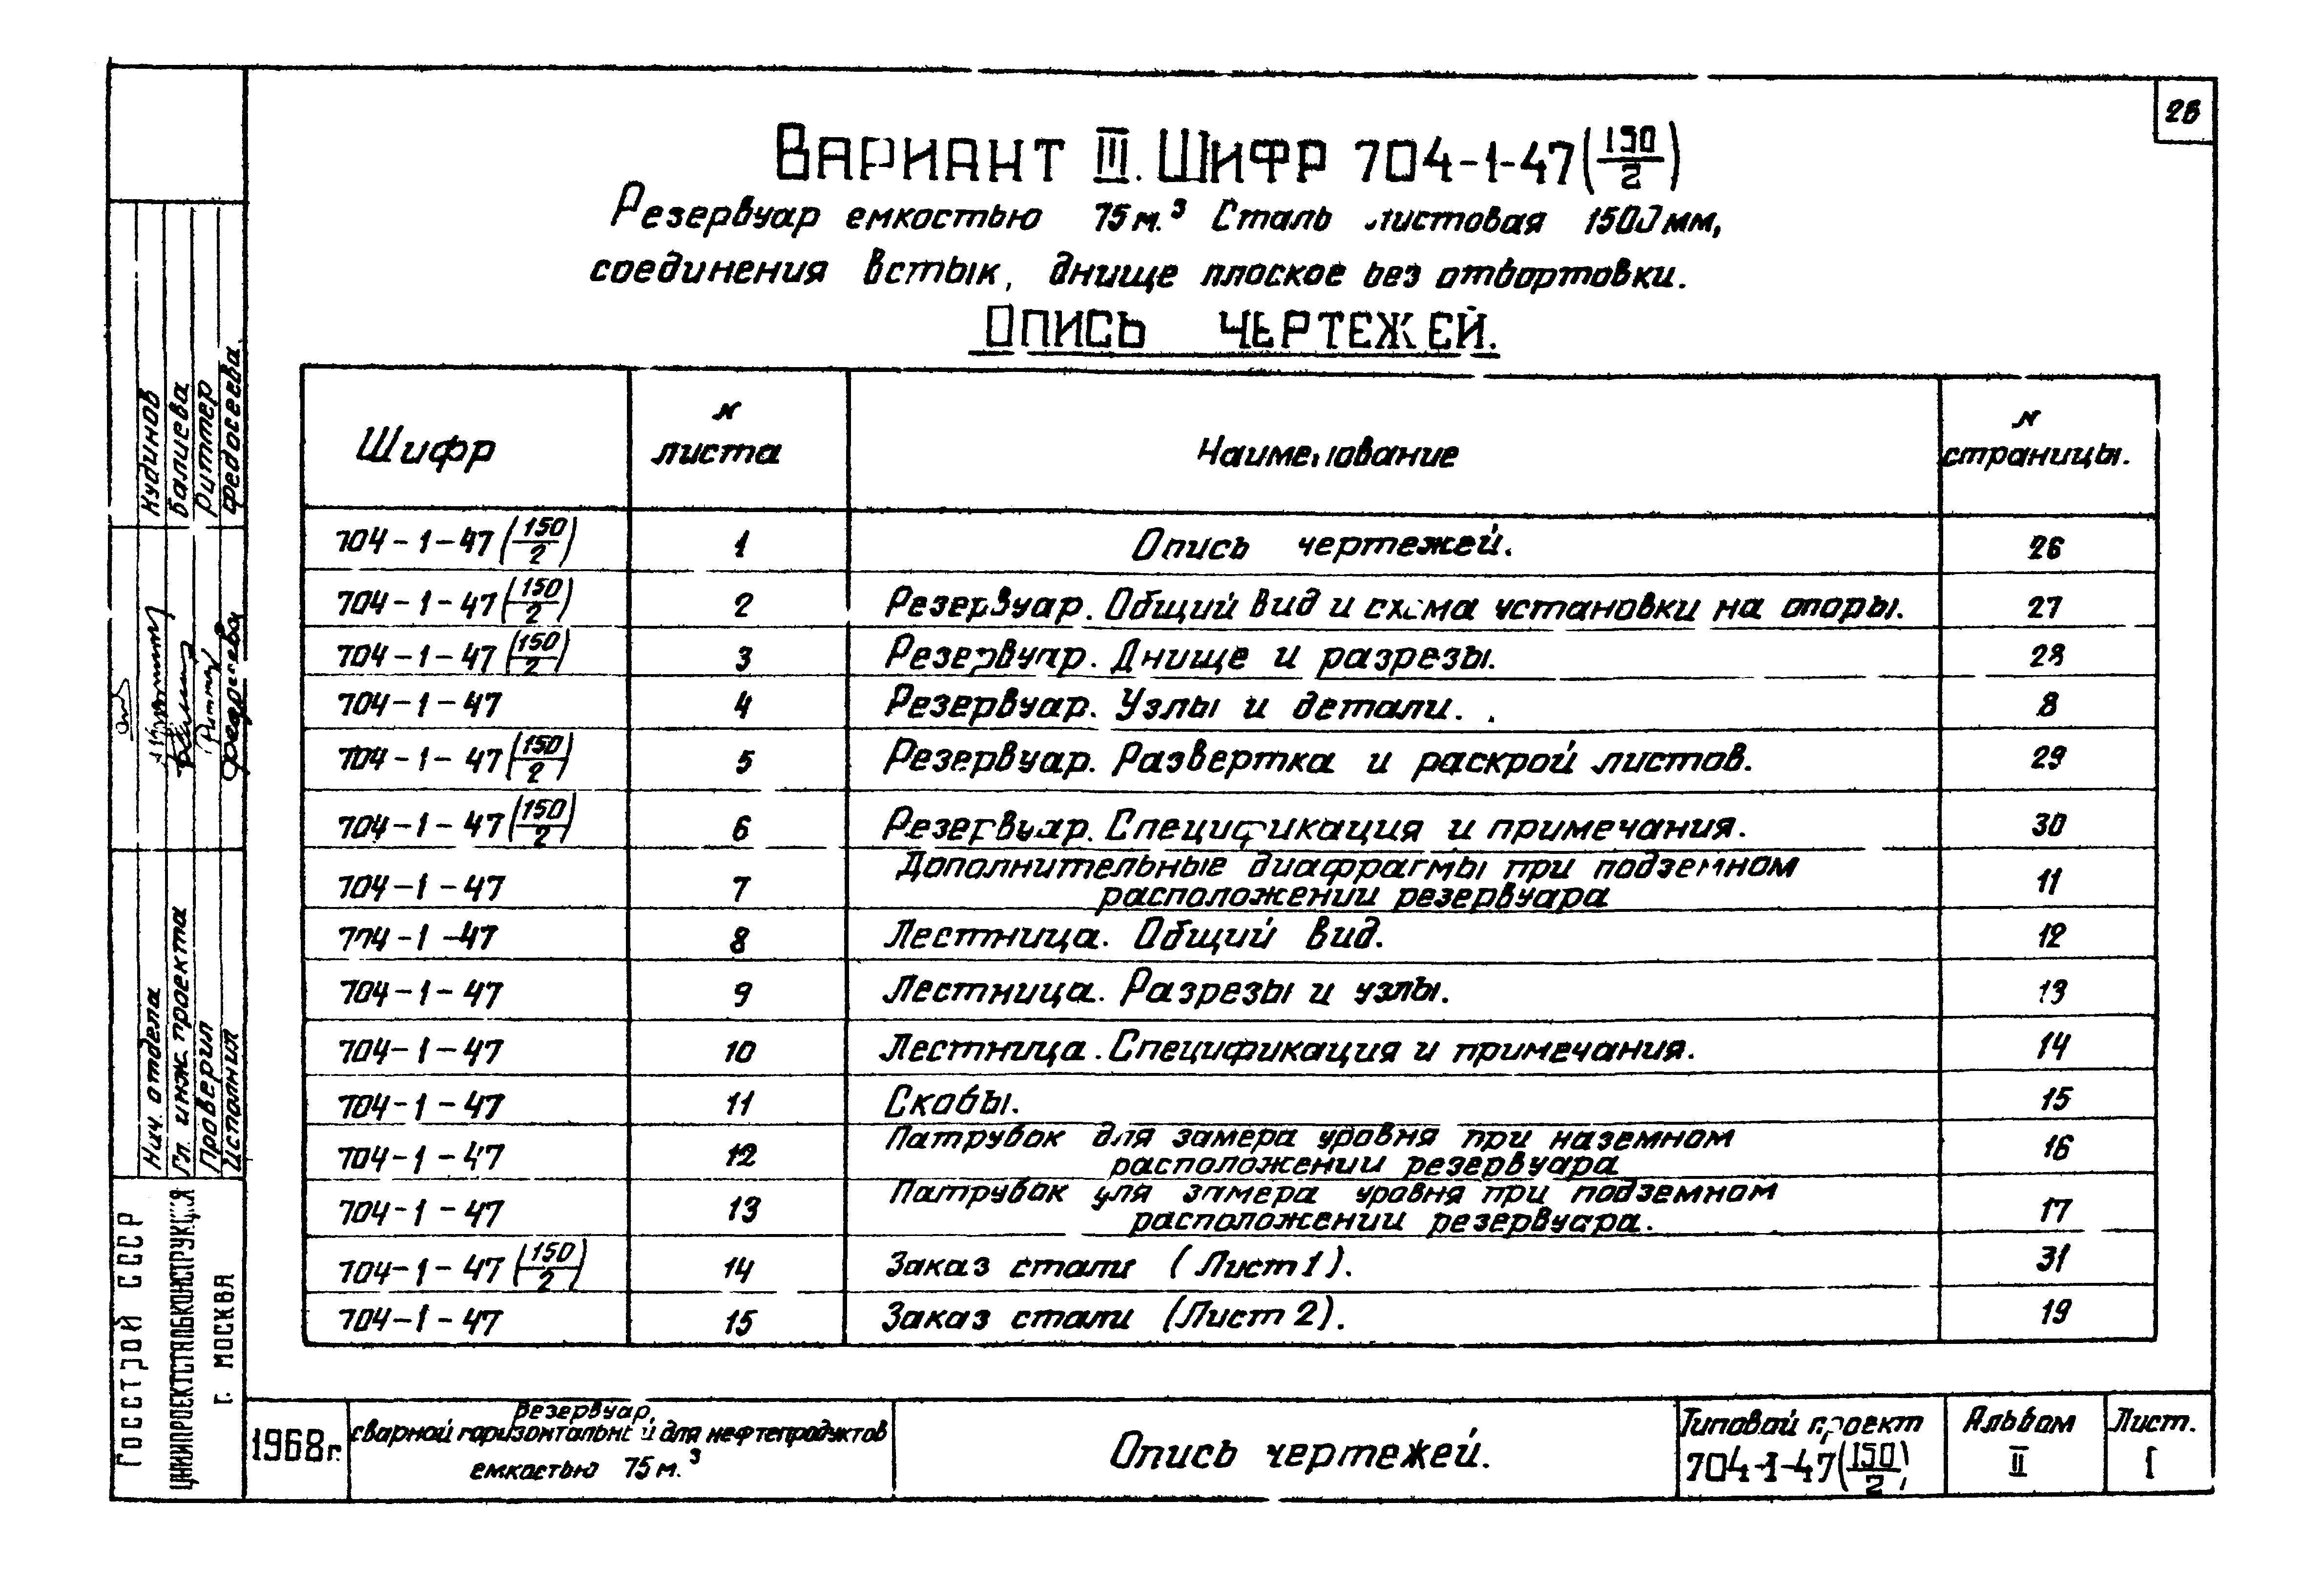 26
Вариант III. Шифр 704-1-47(150/2)
Резервуар емкостью 75 м.³ Сталь листовая 1500 мм,
соединения встык, днище плоское без отбортовки.
Опись чертежей.
Шифр | N листа | Наименование | N страницы.
704-1-47(150/2) | 1 | Опись чертежей. | 26
704-1-47(150/2) | 2 | Резервуар. Общий вид и схема установки на опоры. | 27
704-1-47(150/2) | 3 | Резервуар. Днище и разрезы. | 28
704-1-47 | 4 | Резервуар. Узлы и детали. | 8
704-1-47(150/2) | 5 | Резервуар. Развертка и раскрой листов. | 29
704-1-47(150/2) | 6 | Резервуар. Спецификация и примечания. | 30
704-1-47 | 7 | Дополнительные диафрагмы при подземном расположении резервуара | 11
704-1-47 | 8 | Лестница. Общий вид. | 12
704-1-47 | 9 | Лестница. Разрезы и узлы. | 13
704-1-47 | 10 | Лестница. Спецификация и примечания. | 14
704-1-47 | 11 | Скобы. | 15
704-1-47 | 12 | Патрубок для замера уровня при наземном расположении резервуара | 16
704-1-47 | 13 | Патрубок для замера уровня при подземном расположении резервуара. | 17
704-1-47(150/2) | 14 | Заказ стали (Лист 1). | 31
704-1-47 | 15 | Заказ стали (Лист 2). | 19
Нач. отдела Кудинов
Гл. инж. проекта Балиева
Проверил Риттер
Исполнил Федосеева
Госстрой СССР
ЦНИИПРОЕКТСТАЛЬКОНСТРУКЦИЯ
г. МОСКВА
1968 г.
Резервуар,
сварной горизонтальный для нефтепродуктов
емкостью 75 м.³
Опись чертежей.
Типовой проект
704-1-47(150/2)
Альбом
II
Лист.
1